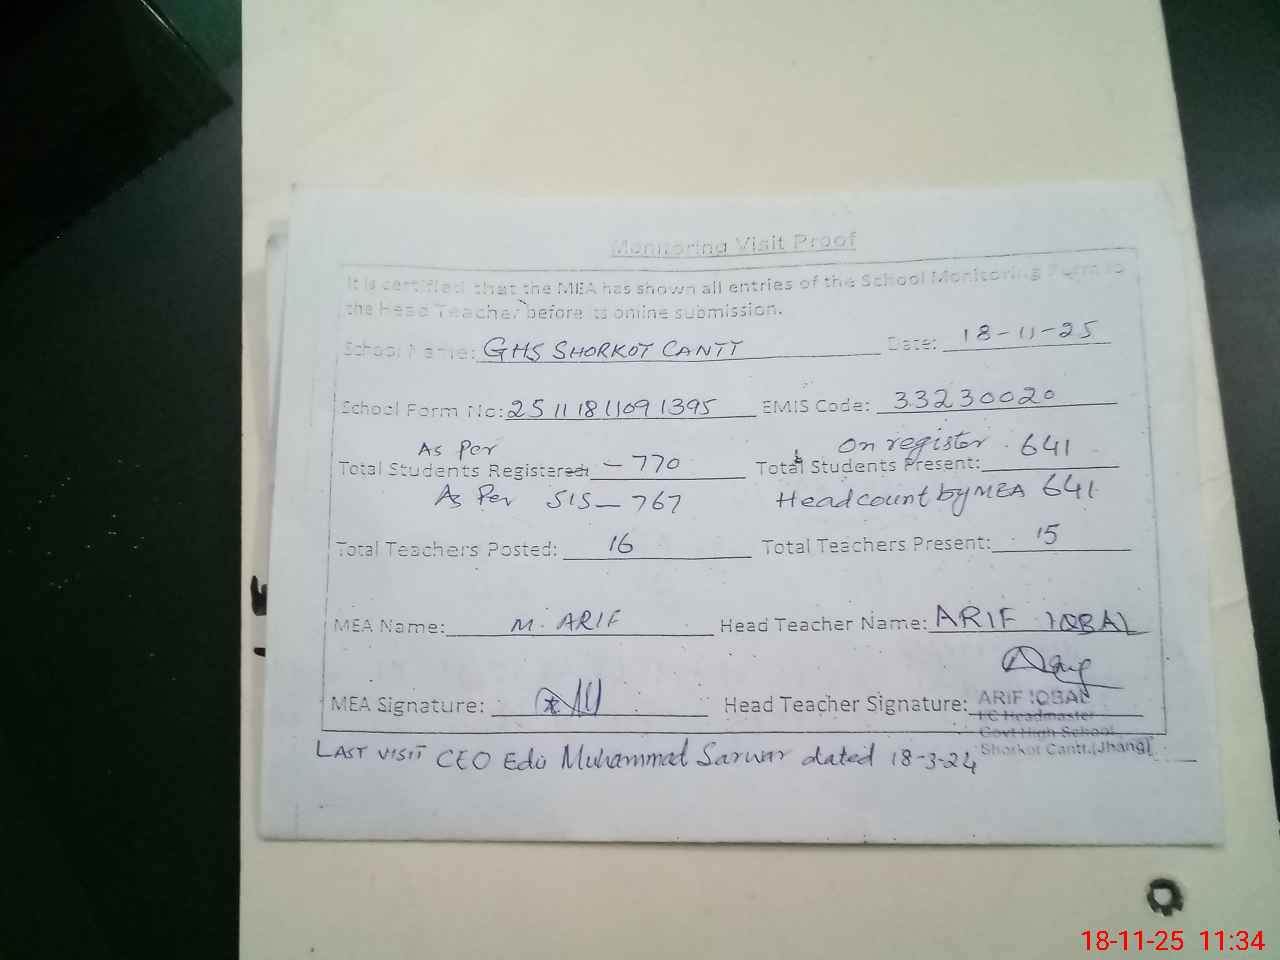 Monitoring Visit Proof
It is certified that the MEA has shown all entries of the School Monitoring Form to
the Head Teacher before its online submission.
School Name: GHS SHORKOT CANTT Date: 18-11-25
School Form No: 2511181109 1395 EMIS Code: 33230020
As Per On register . 641
Total Students Registered: - 770 Total Students Present:
As Per SIS - 767 Headcount by MEA 641
Total Teachers Posted: 16 Total Teachers Present: 15
MEA Name: M. ARIF Head Teacher Name: ARIF IQBAL
MEA Signature: Head Teacher Signature: ARIF IQBAL
I/C Headmaster
Govt High School
Shorkot Cantt.(Jhang)
LAST VISIT CEO Edu Muhammad Sarwar dated 18-3-24
18-11-25 11:34